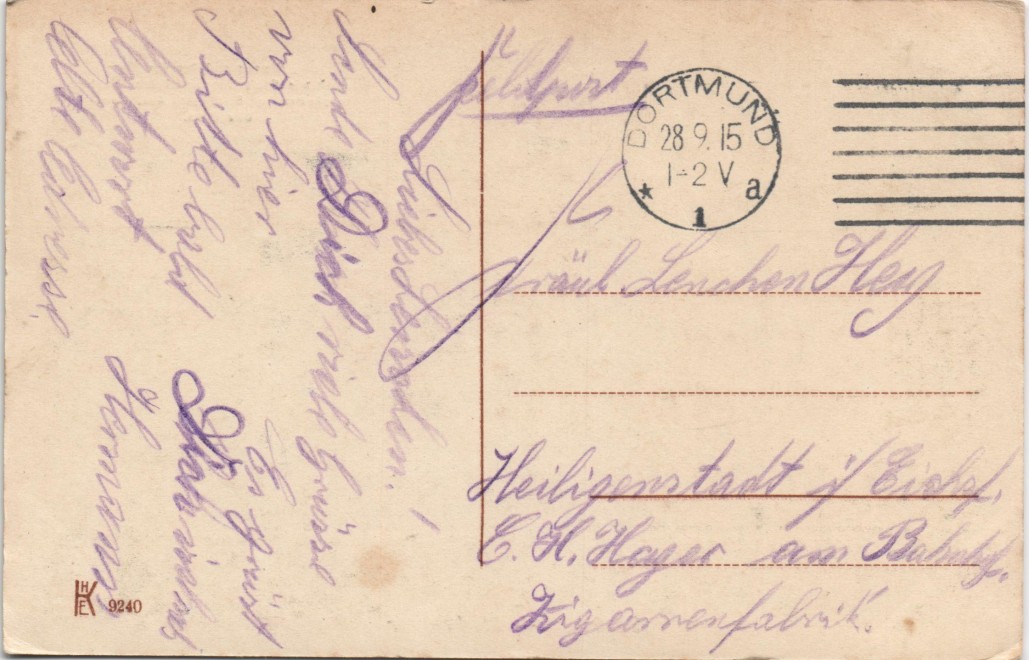 Feldpost
DORTMUND
28 9. 15
1-2 V
* 1 a
Fräul. Lenchen Hey
Heiligenstadt i/ Eichsf.
E. H. Hager am Bahnhf.
Zigarrenfabrik.
Liebs Lenchen!
Sende Dir viele Grüsse
von hier
Bitte bald
Antwort
alte Adresse!
Es grüßt
Dich
HKE
9240